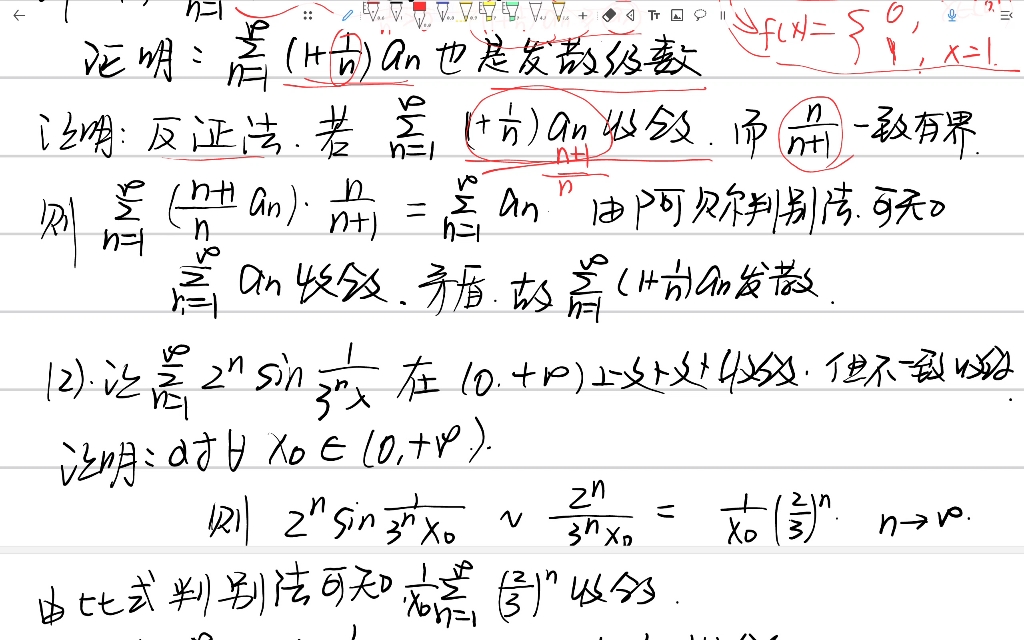 n=1
f(x)= { 0
1, x=1.
证明: ∞∑n=1 (1+1/n) an 也是发散级数
证明: 反证法. 若 ∞∑n=1 (1+1/n) an 收敛. 而 n/(n+1) 一致有界.
(n+1)/n
则 ∞∑n=1 ((n+1)/n an)· n/(n+1) = ∞∑n=1 an 由阿贝尔判别法可知
∞∑n=1 an 收敛. 矛盾. 故 ∞∑n=1 (1+1/n)an发散.
(2). 证 ∞∑n=1 2^n sin 1/(3^n x) 在 (0.+∞) 上处处收敛. 但不一致收敛.
证明: 对 ∀ x0 ∈ (0,+∞).
则 2^n sin 1/(3^n x0) ~ 2^n/(3^n x0) = 1/x0 (2/3)^n. n→∞.
由比式判别法可知 1/x0 ∞∑n=1 (2/3)^n 收敛.